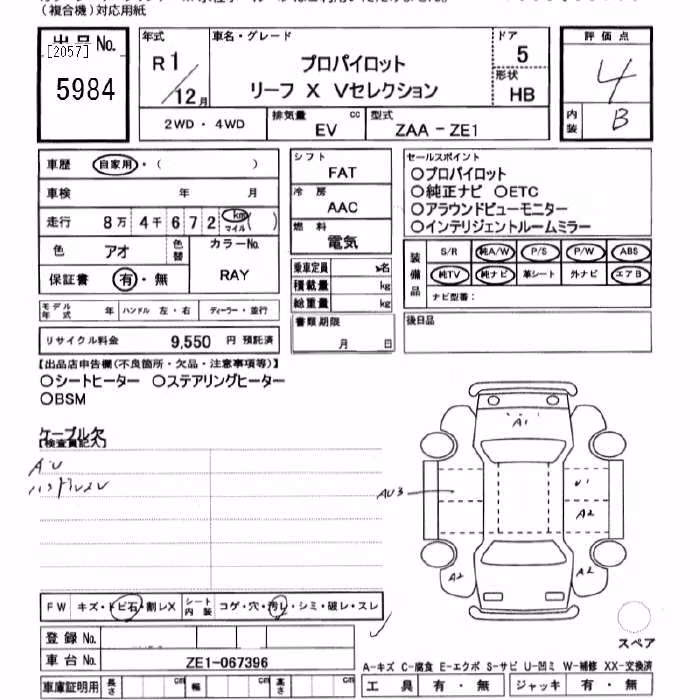 (複合機)対応用紙
出品No.
[2057]
5984
年式
R1/12月
車名・グレード
プロパイロット
リーフ X Vセレクション
ドア
5
形状
HB
評価点
4
内装
B
2WD・4WD
排気量 cc
EV
型式
ZAA-ZE1
車歴 自家用・( )
車検 年 月
走行 8万4千672 km マイル ( )
色 アオ 色替
カラーNo.
RAY
保証書 有・無
シフト
FAT
冷房
AAC
燃料
電気
乗車定員 名
積載量 kg
総重量 kg
書類期限
月 日
セールスポイント
○プロパイロット
○純正ナビ ○ETC
○アラウンドビューモニター
○インテリジェントルームミラー
装備品
S/R 純A/W P/S P/W ABS
純TV 純ナビ 革シート 外ナビ エアB
ナビ型番:
後日品
モデル年式 年 ハンドル 左・右 ディーラー・並行
リサイクル料金 9,550 円 預託済
【出品店申告欄(不良箇所・欠品・注意事項等)】
○シートヒーター ○ステアリングヒーター
○BSM
ケーブル欠
【検査員記入】
AU
ハンドルスレ
A1
AU3
U1
A2
A2
A2
FW キズ・トビ石・割レX
シート内装 コゲ・穴・汚レ・シミ・破レ・スレ
登録No.
車台No. ZE1-067396
車庫証明用 長さ cm 幅 cm 高さ cm
スペア
A-キズ C-腐食 E-エクボ S-サビ U-凹ミ W-補修 XX-交換済
工具 有・無 ジャッキ 有・無